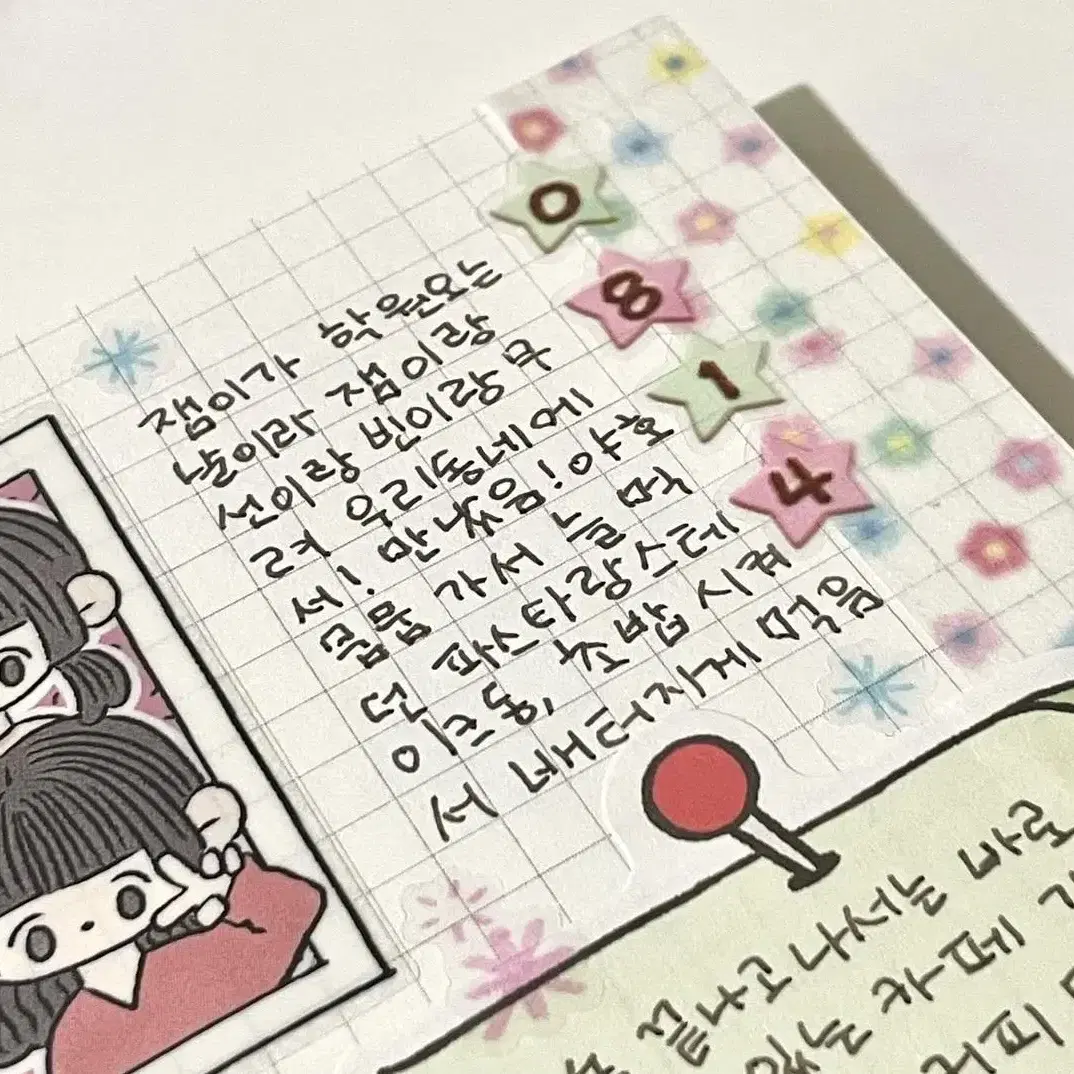 0
8
1
4
잼이가 학원오는
날이라 잼이랑
선이랑 빈이랑 무
려 우리동네에
서! 만났음! 야호
가서 늘 먹
던 파스타랑스테
이크동, 초밥 시켜
서 배터지게 먹음
끝나고나서는 바로
있는 카페
커피